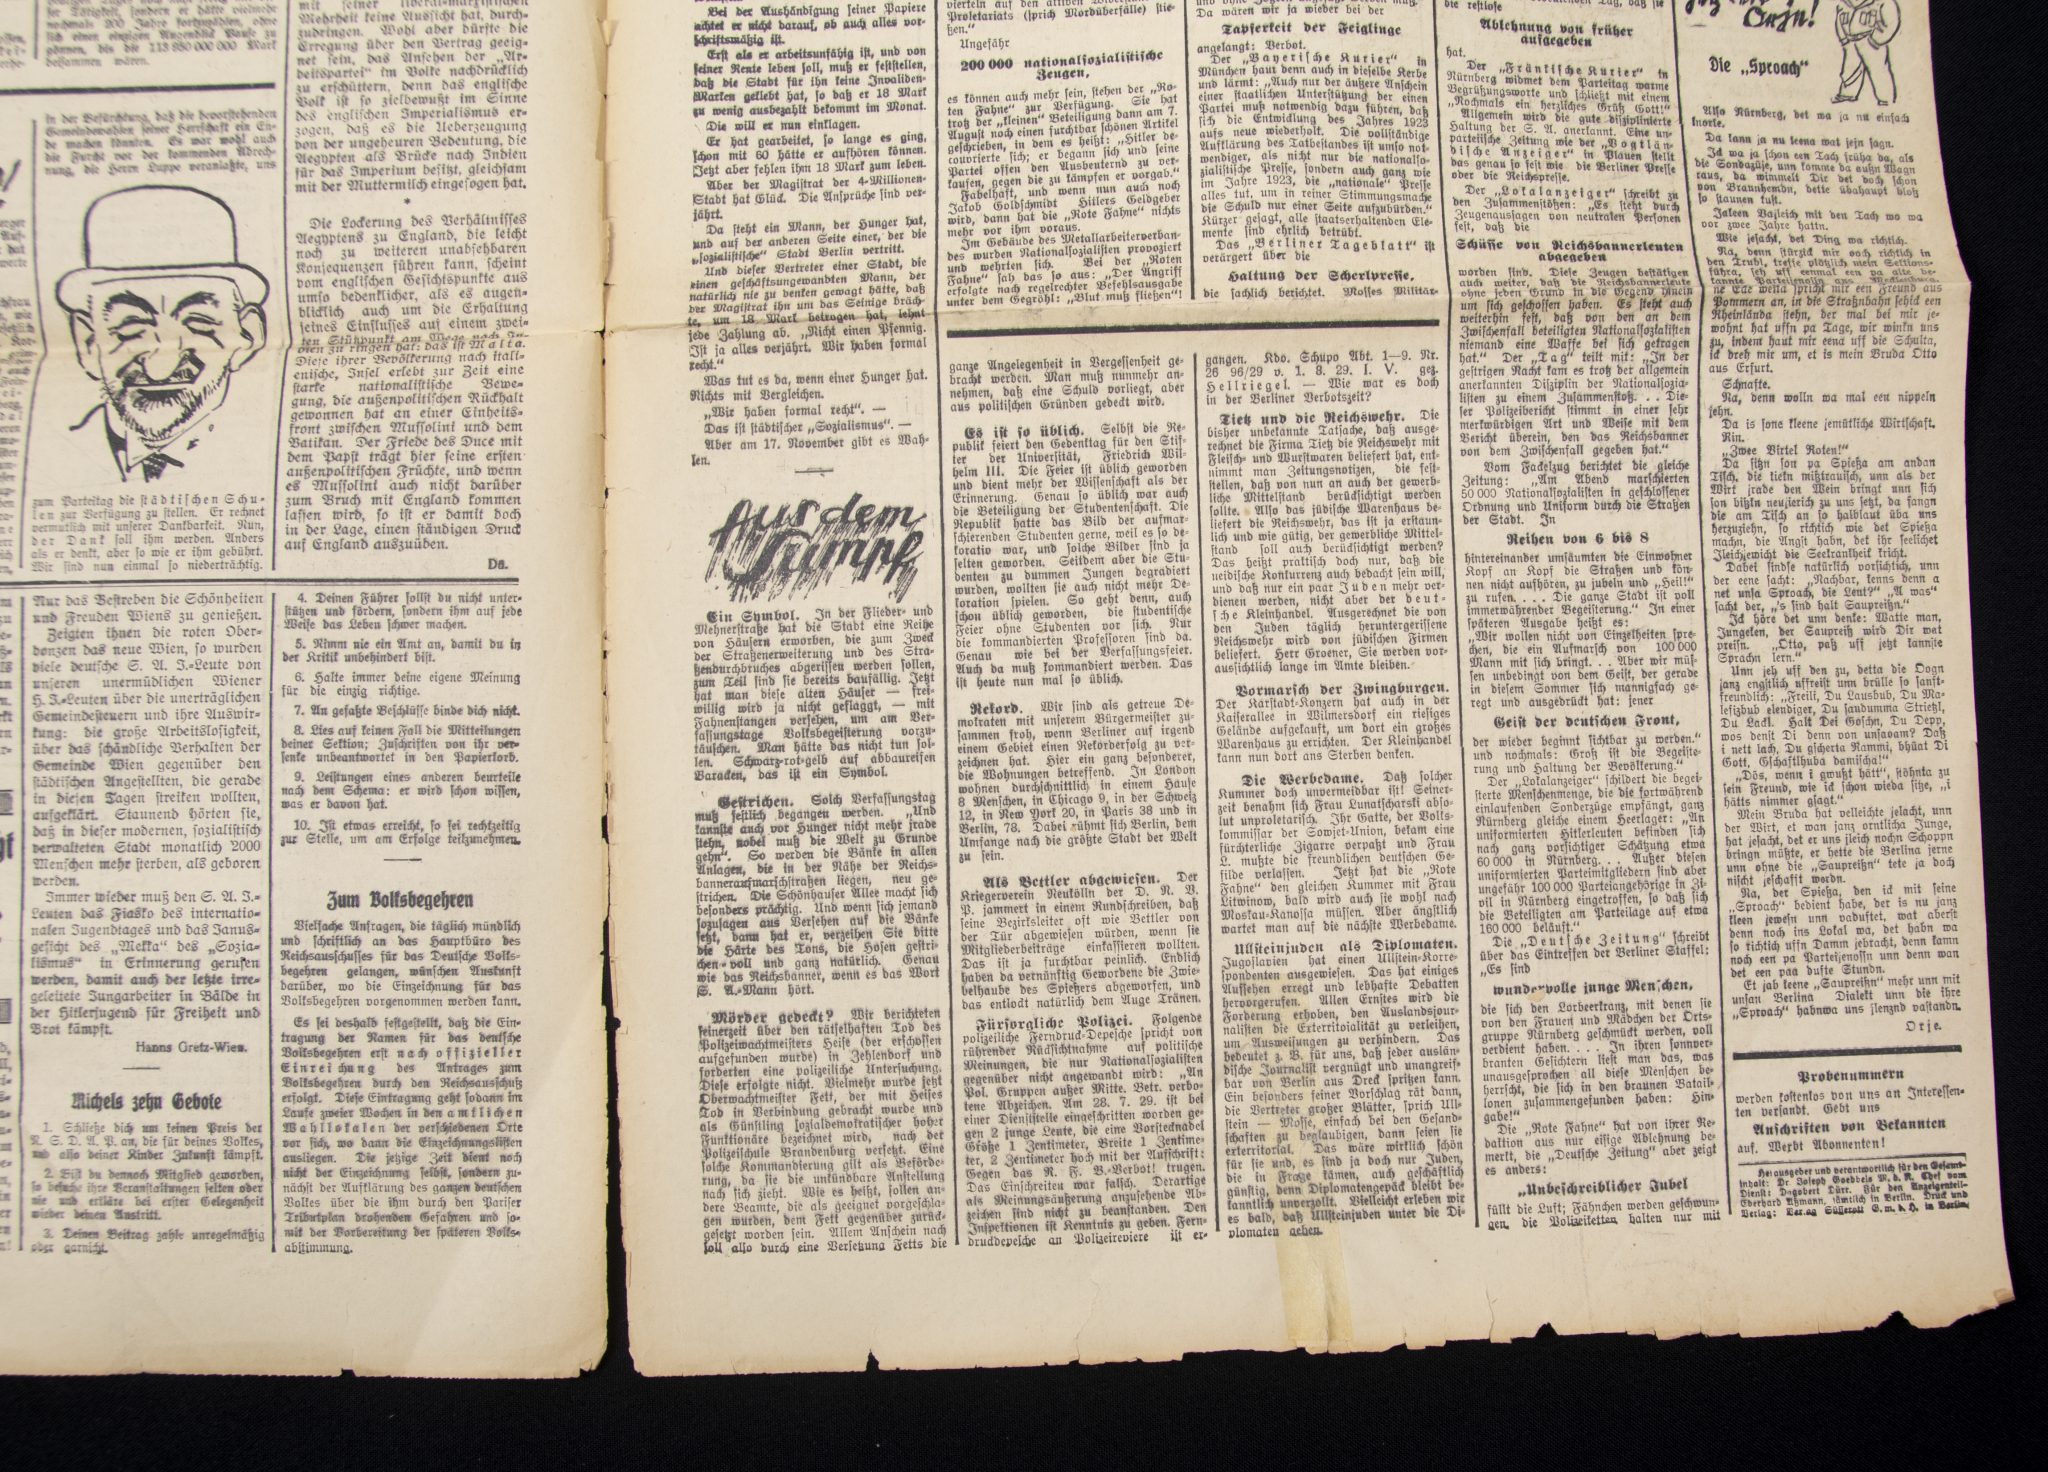 in der Befürchtung, daß die bevorstehenden
Gemeindewahlen seiner Herrschaft ein En-
de machen könnten. Es war wohl auch
die Furcht vor der kommenden Abrech-
nung, die Herrn Luppe veranlaßte, uns
zum Parteitag die städtischen Schu-
len zur Verfügung zu stellen. Er rechnet
vermutlich mit unserer Dankbarkeit. Nun,
der Dank soll ihm werden. Anders
als er denkt, aber so wie er ihm gebührt.
Wir sind nun einmal so niederträchtig.
Mehrheit keine Aussicht hat, durch-
zudringen. Wohl aber dürfte die
Erregung über den Vertrag geeig-
net sein, das Ansehen der „Ar-
beitspartei" im Volke nachdrücklich
zu erschüttern, denn das englische
Volk ist so zielbewußt im Sinne
des englischen Imperialismus er-
zogen, daß es die Ueberzeugung
von der ungeheuren Bedeutung, die
Aegypten als Brücke nach Indien
für das Imperium besitzt, gleichsam
mit der Muttermilch eingesogen hat.
*
Die Lockerung des Verhältnisses
Aegyptens zu England, die leicht
noch zu weiteren unabsehbaren
Konsequenzen führen kann, scheint
vom englischen Gesichtspunkte aus
umso bedenklicher, als es augen-
blicklich auch um die Erhaltung
seines Einflusses auf einem zwei-
ten Stützpunkt am Wege nach In-
dien zu ringen hat: das ist Malta.
Diese ihrer Bevölkerung nach itali-
enische, Insel erlebt zur Zeit eine
starke nationalistische Bewe-
gung, die außenpolitischen Rückhalt
gewonnen hat an einer Einheits-
front zwischen Mussolini und dem
Vatikan. Der Friede des Duce mit
dem Papst trägt hier seine ersten
außenpolitischen Früchte, und wenn
es Mussolini auch nicht darüber
zum Bruch mit England kommen
lassen wird, so ist er damit doch
in der Lage, einen ständigen Druck
auf England auszuüben.
Da.
Nur das Bestreben die Schönheiten
und Freuden Wiens zu genießen.
Zeigten ihnen die roten Ober-
bonzen das neue Wien, so wurden
viele deutsche S. A. J.-Leute von
unseren unermüdlichen Wiener
H. J.-Leuten über die unerträglichen
Gemeindesteuern und ihre Auswir-
kung: die große Arbeitslosigkeit,
über das schändliche Verhalten der
Gemeinde Wien gegenüber den
städtischen Angestellten, die gerade
in diesen Tagen streiken wollten,
aufgeklärt. Staunend hörten sie,
daß in dieser modernen, sozialistisch
verwalteten Stadt monatlich 2000
Menschen mehr sterben, als geboren
werden.
Immer wieder muß den S. A. J.-
Leuten das Fiasko des internatio-
nalen Jugendtages und das Janus-
gesicht des „Mekka" des „Sozia-
lismus" in Erinnerung gerufen
werden, damit auch der letzte irre-
geleitete Jungarbeiter in Bälde in
der Hitlerjugend für Freiheit und
Brot kämpft.
Hanns Gretz-Wien.
Michels zehn Gebote
1. Schließe dich um keinen Preis der
N. S. D. A. P. an, die für deines Volkes,
und also deiner Kinder Zukunft kämpft.
2. Bist du dennoch Mitglied geworden,
so besuche ihre Veranstaltungen selten oder
nie und erkläre bei erster Gelegenheit
wieder deinen Austritt.
3. Deinen Beitrag zahle unregelmäßig
oder garnicht.
4. Deinen Führer sollst du nicht unter-
stützen und fördern, sondern ihm auf jede
Weise das Leben schwer machen.
5. Nimm nie ein Amt an, damit du in
der Kritik unbehindert bist.
6. Halte immer deine eigene Meinung
für die einzig richtige.
7. An gefaßte Beschlüsse binde dich nicht.
8. Lies auf keinen Fall die Mitteilungen
deiner Sektion; Zuschriften von ihr ver-
senke unbeantwortet in den Papierkorb.
9. Leistungen eines anderen beurteile
nach dem Schema: er wird schon wissen,
was er davon hat.
10. Ist etwas erreicht, so sei rechtzeitig
zur Stelle, um am Erfolge teilzunehmen.
Zum Volksbegehren
Vielfache Anfragen, die täglich mündlich
und schriftlich an das Hauptbüro des
Reichsausschusses für das Deutsche Volks-
begehren gelangen, wünschen Auskunft
darüber, wo die Einzeichnung für das
Volksbegehren vorgenommen werden kann.
Es sei deshalb festgestellt, daß die Ein-
tragung der Namen für das deutsche
Volksbegehren erst nach offizieller
Einreichung des Antrages zum
Volksbegehren durch den Reichsausschuß
erfolgt. Diese Eintragung geht sodann im
Laufe zweier Wochen in den amtlichen
Wahllokalen der verschiedenen Orte
vor sich, wo dann die Einzeichnungslisten
ausliegen. Die jetzige Zeit dient noch
nicht der Einzeichnung selbst, sondern zu-
nächst der Aufklärung des ganzen deutschen
Volkes über die ihm durch den Pariser
Tributplan drohenden Gefahren und so-
mit der Vorbereitung der späteren Volks-
abstimmung.
Bei der Aushändigung seiner Papiere
achtet er nicht darauf, ob auch alles vor-
schriftsmäßig ist.
Erst als er arbeitsunfähig ist, und von
seiner Rente leben soll, muß er feststellen,
daß die Stadt für ihn keine Invaliden-
Marken geklebt hat, so daß er 18 Mark
zu wenig ausbezahlt bekommt im Monat.
Die will er nun einklagen.
Er hat gearbeitet, so lange es ging,
schon mit 60 hätte er aufhören können.
Jetzt aber fehlen ihm 18 Mark zum Leben.
Aber der Magistrat der 4-Millionen-
Stadt hat Glück. Die Ansprüche sind ver-
jährt.
Da steht ein Mann, der Hunger hat,
und auf der anderen Seite einer, der die
„sozialistische" Stadt Berlin vertritt.
Und dieser Vertreter einer Stadt, die
einen geschäftsungewandten Mann, der
natürlich nie zu denken gewagt hätte, daß
der Magistrat ihn um das Seinige bräch-
te, um 18 Mark betrogen hat, lehnt
jede Zahlung ab. „Nicht einen Pfennig.
Ist ja alles verjährt. Wir haben formal
recht."
Was tut es da, wenn einer Hunger hat.
Nichts mit Vergleichen.
„Wir haben formal recht". —
Das ist städtischer „Sozialismus". —
Aber am 17. November gibt es Wah-
len.
Aus dem
Sumpf
Ein Symbol. In der Flieder- und
Mehnerstraße hat die Stadt eine Reihe
von Häusern erworben, die zum Zweck
der Straßenerweiterung und des Stra-
ßendurchbruches abgerissen werden sollen,
zum Teil sind sie bereits baufällig. Jetzt
hat man diese alten Häuser — frei-
willig wird ja nicht geflaggt, — mit
Fahnenstangen versehen, um am Ver-
fassungstage Volksbegeisterung vorzu-
täuschen. Man hätte das nicht tun sol-
len. Schwarz-rot-gelb auf abbaureifen
Baracken, das ist ein Symbol.
Gestrichen. Solch Verfassungstag
muß festlich begangen werden. „Und
kannste auch vor Hunger nicht mehr jrade
stehn, nobel muß die Welt zu Grunde
gehn". So werden die Bänke in allen
Anlagen, die in der Nähe der Reichs-
banneraufmarschstraßen liegen, neu ge-
strichen. Die Schönhauser Allee macht sich
besonders prächtig. Und wenn sich jemand
sozusagen aus Versehen auf die Bänke
setzt, dann hat er, verzeihen Sie bitte
die Härte des Tons, die Hosen gestri-
chen-voll und ganz natürlich. Genau
wie das Reichsbanner, wenn es das Wort
S. A.-Mann hört.
Mörder gedeckt? Wir berichteten
seinerzeit über den rätselhaften Tod des
Polizeiwachtmeisters Heise (der erschossen
aufgefunden wurde) in Zehlendorf und
forderten eine polizeiliche Untersuchung.
Diese erfolgte nicht. Vielmehr wurde jetzt
Oberwachtmeister Fett, der mit Heises
Tod in Verbindung gebracht wurde und
als Günstling sozialdemokratischer hoher
Funktionäre bezeichnet wird, nach der
Polizeischule Brandenburg versetzt. Eine
solche Kommandierung gilt als Beförde-
rung, da sie die unkündbare Anstellung
nach sich zieht. Wie es heißt, sollen an-
dere Beamte, die als geeignet vorgeschla-
gen wurden, dem Fett gegenüber zurück-
gesetzt worden sein. Allem Anschein nach
soll also durch eine Versetzung Fetts die
Proletariats (sprich Mordüberfälle) stie-
ßen."
Ungefähr
200 000 nationalsozialistische
Zeugen,
es können auch mehr sein, stehen der „Ro-
ten Fahne" zur Verfügung. Sie hat
trotz der „kleinen" Beteiligung dann am 7.
August noch einen furchtbar schönen Artikel
geschrieben, in dem es heißt: „Hitler de-
couvrierte sich; er begann sich und seine
Partei offen den Ausbeutern zu ver-
kaufen, gegen die zu kämpfen er vorgab."
Fabelhaft, und wenn nun auch noch
Jakob Goldschmidt Hitlers Geldgeber
wird, dann hat die „Rote Fahne" nichts
mehr vor ihm voraus.
Im Gebäude des Metallarbeiterverban-
des wurden Nationalsozialisten provoziert
und wehrten sich. Bei der „Roten
Fahne" sah das so aus: „Der Angriff
erfolgte nach regelrechter Befehlsausgabe
unter dem Gegröhl: „Blut muß fließen"!
Da wären wir ja wieder bei der
Tapferkeit der Feiglinge
angelangt: Verbot.
Der „Bayerische Kurier" in
München haut denn auch in dieselbe Kerbe
und lärmt: „Auch nur der äußere Anschein
einer staatlichen Unterstützung der einen
Partei muß notwendig dazu führen, daß
sich die Entwicklung des Jahres 1923
aufs neue wiederholt. Die vollständige
Aufklärung des Tatbestandes ist umso not-
wendiger, als nicht nur die nationalso-
zialistische Presse, sondern auch ganz wie
im Jahre 1923, die „nationale" Presse
alles tut, um in reiner Stimmungsmache
die Schuld nur einer Seite aufzubürden."
Kürzer gesagt, alle staatserhaltenden Ele-
mente sind ehrlich betrübt.
Das „Berliner Tageblatt" ist
verärgert über die
Haltung der Scherlpresse,
die sachlich berichtet. Mosses Militär-
ganze Angelegenheit in Vergessenheit ge-
bracht werden. Man muß nunmehr an-
nehmen, daß eine Schuld vorliegt, aber
aus politischen Gründen gedeckt wird.
Es ist so üblich. Selbst die Re-
publik feiert den Gedenktag für den Stif-
ter der Universität, Friedrich Wil-
helm III. Die Feier ist üblich geworden
und dient mehr der Wissenschaft als der
Erinnerung. Genau so üblich war auch
die Beteiligung der Studentenschaft. Die
Republik hatte das Bild der aufmar-
schierenden Studenten gerne, weil es so de-
korativ war, und solche Bilder sind ja
selten geworden. Seitdem aber die Stu-
denten zu dummen Jungen degradiert
wurden, wollten sie auch nicht mehr De-
koration spielen. So geht denn, auch
schon üblich geworden, die studentische
Feier ohne Studenten vor sich. Nur
die kommandierten Professoren sind da.
Genau wie bei der Verfassungsfeier.
Auch da muß kommandiert werden. Das
ist heute nun mal so üblich.
Rekord. Wir sind als getreue De-
mokraten mit unserem Bürgermeister zu-
sammen froh, wenn Berliner auf irgend
einem Gebiet einen Rekorderfolg zu ver-
zeichnen hat. Hier ein ganz besonderer,
die Wohnungen betreffend. In London
wohnen durchschnittlich in einem Hause
8 Menschen, in Chicago 9, in der Schweiz
12, in New York 20, in Paris 38 und in
Berlin, 78. Dabei rühmt sich Berlin, dem
Umfange nach die größte Stadt der Welt
zu sein.
Als Bettler abgewiesen. Der
Kriegerverein Neukölln der D. N. V.
P. jammert in einem Rundschreiben, daß
seine Bezirksleiter oft wie Bettler von
der Tür abgewiesen würden, wenn sie
Mitgliederbeiträge einkassieren wollten.
Das ist ja furchtbar peinlich. Endlich
haben da vernünftig Gewordene die Zwie-
belhaube des Spießers abgeworfen, und
das entlockt natürlich dem Auge Tränen.
Fürsorgliche Polizei. Folgende
polizeiliche Ferndruck-Depesche spricht von
rührender Rücksichtnahme auf politische
Meinungen, die nur Nationalsozialisten
gegenüber nicht angewandt wird: „An
Pol. Gruppen außer Mitte. Betr. verbo-
tene Abzeichen. Am 28. 7. 29. ist bei
einer Dienststelle eingeschritten worden ge-
gen 2 junge Leute, die eine Vorstecknadel
Größe 1 Zentimeter, Breite 1 Zentime-
ter, 2 Zentimeter hoch mit der Aufschrift:
Gegen das R. F. B.-Verbot! trugen.
Das Einschreiten war falsch. Derartige
als Meinungsäußerung anzusehende Ab-
zeichen sind nicht zu beanstanden. Den
Inspektionen ist Kenntnis zu geben. Fern-
druckdepesche an Polizeireviere ist er-
gangen. Kdo. Schupo Abt. 1—9. Nr.
26 96/29 v. 1. 8. 29. I. V. gez.
Hellriegel. — Wie war es doch
in der Berliner Verbotszeit?
Tietz und die Reichswehr. Die
bisher unbekannte Tatsache, daß ausge-
rechnet die Firma Tietz die Reichswehr mit
Fleisch- und Wurstwaren beliefert hat, ent-
nimmt man Zeitungsnotizen, die fest-
stellen, daß von nun an auch der gewerb-
liche Mittelstand berücksichtigt werden
sollte. Also das jüdische Warenhaus be-
liefert die Reichswehr, das ist ja erstaun-
lich und wie gütig, der gewerbliche Mittel-
stand soll auch berücksichtigt werden?
Das heißt praktisch doch nur, daß die
neidische Konkurrenz auch bedacht sein will,
und daß nur ein paar Juden mehr ver-
dienen werden, nicht aber der deut-
sche Kleinhandel. Ausgerechnet die von
den Juden täglich heruntergerissene
Reichswehr wird von jüdischen Firmen
beliefert. Herr Groener, Sie werden vor-
aussichtlich lange im Amte bleiben.
Vormarsch der Zwingburgen.
Der Karstadt-Konzern hat auch in der
Kaiserallee in Wilmersdorf ein riesiges
Gelände aufgekauft, um dort ein großes
Warenhaus zu errichten. Der Kleinhandel
kann nun dort ans Sterben denken.
Die Werbedame. Daß solcher
Kummer doch unvermeidbar ist! Seiner-
zeit benahm sich Frau Lunatscharski abso-
lut unproletarisch. Ihr Gatte, der Volks-
kommissar der Sowjet-Union, bekam eine
fürchterliche Zigarre verpaßt und Frau
L. mußte die freundlichen deutschen Ge-
filde verlassen. Jetzt hat die „Rote
Fahne" den gleichen Kummer mit Frau
Litwinow, bald wird auch sie wohl nach
Moskau-Kanossa müssen. Aber ängstlich
wartet man auf die nächste Werbedame.
Ullsteinjuden als Diplomaten.
Jugoslavien hat einen Ullstein-Korre-
spondenten ausgewiesen. Das hat einiges
Aufsehen erregt und lebhafte Debatten
hervorgerufen. Allen Ernstes wird die
Forderung erhoben, den Auslandsjour-
nalisten die Exterritorialität zu verleihen,
um Ausweisungen zu verhindern. Das
bedeutet z. B. für uns, daß jeder auslän-
dische Journalist vergnügt und unangreif-
bar von Berlin aus Dreck spritzen kann.
Ein besonders feiner Vorschlag rät dann,
die Vertreter großer Blätter, sprich Ull-
stein — Mosse, einfach bei den Gesand-
schaften zu beglaubigen, dann seien sie
exterritorial. Das wäre wirklich schön
für sie und, es sind ja doch nur Juden,
die in Frage kämen, auch geschäftlich
günstig, denn Diplomatengepäck bleibt be-
kanntlich unverzollt. Vielleicht erleben wir
es bald, daß Ullsteinjuden unter die Di-
plomaten gehen.
die restlose
Ablehnung von früher
ausgegeben
hat.
Der „Fränkische Kurier" in
Nürnberg widmet dem Parteitag warme
Begrüßungsworte und schließt mit einem
„Nochmals ein herzliches Grüß Gott!"
Allgemein wird die gute disziplinierte
Haltung der S. A. anerkannt. Eine un-
parteiische Zeitung wie der „Vogtlän-
dische Anzeiger" in Plauen stellt
das genau so fest wie die Berliner Presse
oder die Reichspresse.
Der „Lokalanzeiger" schreibt zu
den Zusammenstößen: „Es steht durch
Zeugenaussagen von neutralen Personen
fest, daß die
Schüsse von Reichsbannerleuten
abgegeben
worden sind. Diese Zeugen bestätigen
auch weiter, daß die Reichsbannerleute
ohne jeden Grund in die Gegend hinein
um sich geschossen haben. Es steht auch
weiterhin fest, daß von den an dem
Zwischenfall beteiligten Nationalsozialisten
niemand eine Waffe bei sich getragen
hat." Der „Tag" teilt mit: „In der
gestrigen Nacht kam es trotz der allgemein
anerkannten Disziplin der Nationalsozia-
listen zu einem Zusammenstoß. . . Die-
ser Polizeibericht stimmt in einer sehr
merkwürdigen Art und Weise mit dem
Bericht überein, den das Reichsbanner
von dem Zwischenfall gegeben hat."
Vom Fackelzug berichtet die gleiche
Zeitung: „Am Abend marschierten
50 000 Nationalsozialisten in geschlossener
Ordnung und Uniform durch die Straßen
der Stadt. In
Reihen von 6 bis 8
hintereinander umsäumten die Einwohner
Kopf an Kopf die Straßen und kön-
nen nicht aufhören, zu jubeln und „Heil!"
zu rufen. . . . Die ganze Stadt ist voll
immerwährender Begeisterung." In einer
späteren Ausgabe heißt es:
„Wir wollen nicht von Einzelheiten spre-
chen, die ein Aufmarsch von 100 000
Mann mit sich bringt. . . Aber wir müs-
sen unbedingt von dem Geist, der gerade
in diesem Sommer sich mannigfach ge-
regt und ausgedrückt hat: jener
Geist der deutschen Front,
der wieder beginnt sichtbar zu werden."
und nochmals: Groß ist die Begeiste-
rung und Haltung der Bevölkerung."
Der „Lokalanzeiger" schildert die begei-
sterte Menschenmenge, die die fortwährend
einlaufenden Sonderzüge empfängt, ganz
Nürnberg gleiche einem Heerlager: „An
uniformierten Hitlerleuten befinden sich
nach ganz vorsichtiger Schätzung etwa
60 000 in Nürnberg. . . Außer diesen
uniformierten Parteimitgliedern sind aber
ungefähr 100 000 Parteiangehörige in Zi-
vil in Nürnberg eingetroffen, so daß sich
die Beteiligten am Parteilage auf etwa
160 000 beläuft."
Die „Deutsche Zeitung" schreibt
über das Eintreffen der Berliner Staffel:
„Es sind
wundervolle junge Menschen,
die sich den Lorbeerkranz, mit denen sie
von den Frauen und Mädchen der Orts-
gruppe Nürnberg geschmückt werden, voll
verdient haben. . . . In ihren sonnver-
brannten Gesichtern liest man das, was
unausgesprochen all diese Menschen be-
herrscht, die sich in den braunen Batail-
lonen zusammengefunden haben: Hin-
gabe!"
Die „Rote Fahne" hat von ihrer Re-
daktion aus nur eisige Ablehnung be-
merkt, die „Deutsche Zeitung" aber zeigt
es anders:
„Unbeschreiblicher Jubel
füllt die Luft; Fähnchen werden geschwun-
gen, die Polizeiketten halten nur mit
Orje!
Die „Sproach"
Also Nürnberg, det wa ja nu einfach
knorke.
Da kann ja nu keena wat jejen sagn.
Ick wa ja schon een Tach früha da, als
die Sondazüje, unn komme da außn Wagn
raus, da wimmelt Dir det doch schon
von Braunhemdn, dette übahaupt bloß
so staunen tust.
Jakeen Vajleich mit den Tach wo wa
vor zwee Jahre hattn.
Wie jesacht, det Ding wa richtich.
Na, denn stürzick mir ooch richtich in
den Trubl, treffe plötzlich mein Sektions-
führa, jeh uff eenmal een pa alte be-
ne Ecke weita spricht mir een Freund aus
Pommern an, in die Straßnbahn sehick een
Rheinlända stehn, der mal bei mir je-
wohnt hat uffn pa Tage, wir winkn uns
zu, indem haut mir eena uff die Schulta,
ick dreh mir um, et is mein Bruda Otto
aus Erfurt.
Schnafte.
Na, denn wolln wa mal een nippeln
jehn.
Da is sone kleene jemütliche Wirtschaft.
Rin.
„Zwee Virtel Roten!"
Da sitzn son pa Spießa am andan
Tisch, die kiekn mißtrauisch, unn als der
Wirt jrade den Wein bringt unn sich
son bißkn neujierich zu uns setzt, da fangn
die am Tisch an so halblaut üba uns
herzuziehn, so richtich wie det Spießa
machn, die Angst habn, det ihr seelichet
Jleichjewicht die Seekrankheit kricht.
Dabei sindse natürlich vorsichtich, unn
der eene sacht: „Nachbar, kenns denn a
net unsa Sproach, die Leut?" „A was"
sacht der, „'s sind halt Saupreißn."
Ick höre det unn denke: Watte man,
Jungeken, der Saupreiß wird Dir wat
preißn. „Otto, paß uff jetzt kannste
Sprachn lern."
Unn jeh uff den zu, detta die Oogn
janz engstlich uffreißt unn brülle so sanft-
freundlich: „Freili, Du Lausbub, Du Ma-
lefizbub elendiger, Du saudumma Strießl,
Du Lackl. Halt Dei Goschn, Du Depp,
wos denst Di denn von unsavam? Daß
i nett lach, Du gscherta Rammi, bhüat Di
Gott, Gschaftlhuba damischa!"
„Dös, wenn i gwußt hätt", stöhnta zu
sein Freund, wie ick schon wieda sitze, „i
hätts nimmer gsagt."
Mein Bruda hat velleichte jelacht, unn
der Wirt, et wan janz orntlicha Junge,
hat jesacht, det er uns jleich nochn Schoppn
bringn müßte, er hette die Berlina jerne
unn ohne die „Saupreißn" tete ja doch
nischt jeschafft wordn.
Na, der Spießa, den ick mit seine
„Sproach" bedient habe, der is nu janz
kleen jewesn unn vaduftet, wat aberst
denn noch ins Lokal wa, det habn wa
so richtich uffn Damm jebracht, denn kamn
noch een pa Parteijenossn unn denn wan
det een paa dufte Stundn.
Et jab keene „Saupreißn" mehr unn mit
unsan Berlina Dialekt unn die ihre
„Sproach" habnwa uns jlenzend vastandn.
Orje.
Probenummern
werden kostenlos von uns an Interessen-
ten versandt. Gebt uns
Anschriften von Bekannten
auf. Werbt Abonnenten!
Herausgeber und verantwortlich für den Gesamt-
inhalt: Dr. Joseph Goebbels M. d. R. Chef vom
Dienst: Dagobert Dürr. Für den Anzeigenteil:
Eberhard Aßmann, sämtlich in Berlin. Druck und
Verlag: Verlag Süßerott G. m. b. H. in Berlin.